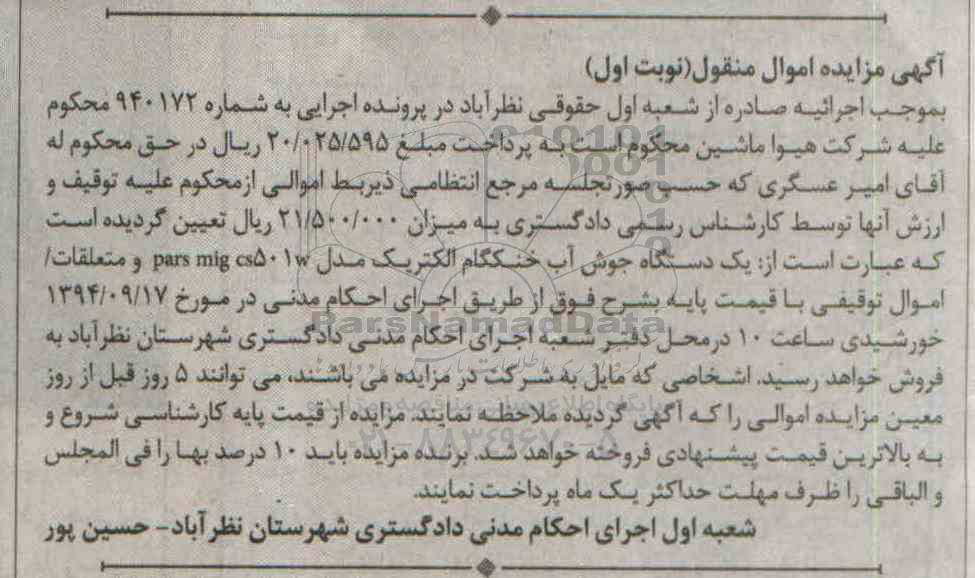 آگهی مزایده اموال منقول(نوبت اول)
بموجب اجرائیه صادره از شعبه اول حقوقی نظرآباد در پرونده اجرایی به شماره ۹۴۰۱۷۲ محکوم
علیه شرکت هیوا ماشین محکوم است به پرداخت مبلغ ۲۰/۰۲۵/۵۹۵ ریال در حق محکوم له
آقای امیر عسگری که حسب صورتجلسه مرجع انتظامی ذیربط اموالی ازمحکوم علیه توقیف و
ارزش آنها توسط کارشناس رسمی دادگستری به میزان ۲۱/۵۰۰/۰۰۰ ریال تعیین گردیده است
که عبارت است از: یک دستگاه جوش آب خنکگام الکتریک مدل pars mig cs۵۰۱w و متعلقات/
اموال توقیفی با قیمت پایه بشرح فوق از طریق اجرای احکام مدنی در مورخ ۱۳۹۴/۰۹/۱۷
خورشیدی ساعت ۱۰ درمحل دفتر شعبه اجرای احکام مدنی دادگستری شهرستان نظرآباد به
فروش خواهد رسید. اشخاصی که مایل به شرکت در مزایده می باشند، می توانند ۵ روز قبل از روز
معین مزایده اموالی را که آگهی گردیده ملاحظه نمایند. مزایده از قیمت پایه کارشناسی شروع و
به بالاترین قیمت پیشنهادی فروخته خواهد شد. برنده مزایده باید ۱۰ درصد بها را فی المجلس
و الباقی را ظرف مهلت حداکثر یک ماه پرداخت نمایند.
شعبه اول اجرای احکام مدنی دادگستری شهرستان نظرآباد- حسین پور
ParsNamadData
۰۲۱-۸۸۳۴۹۶۷۰-۵